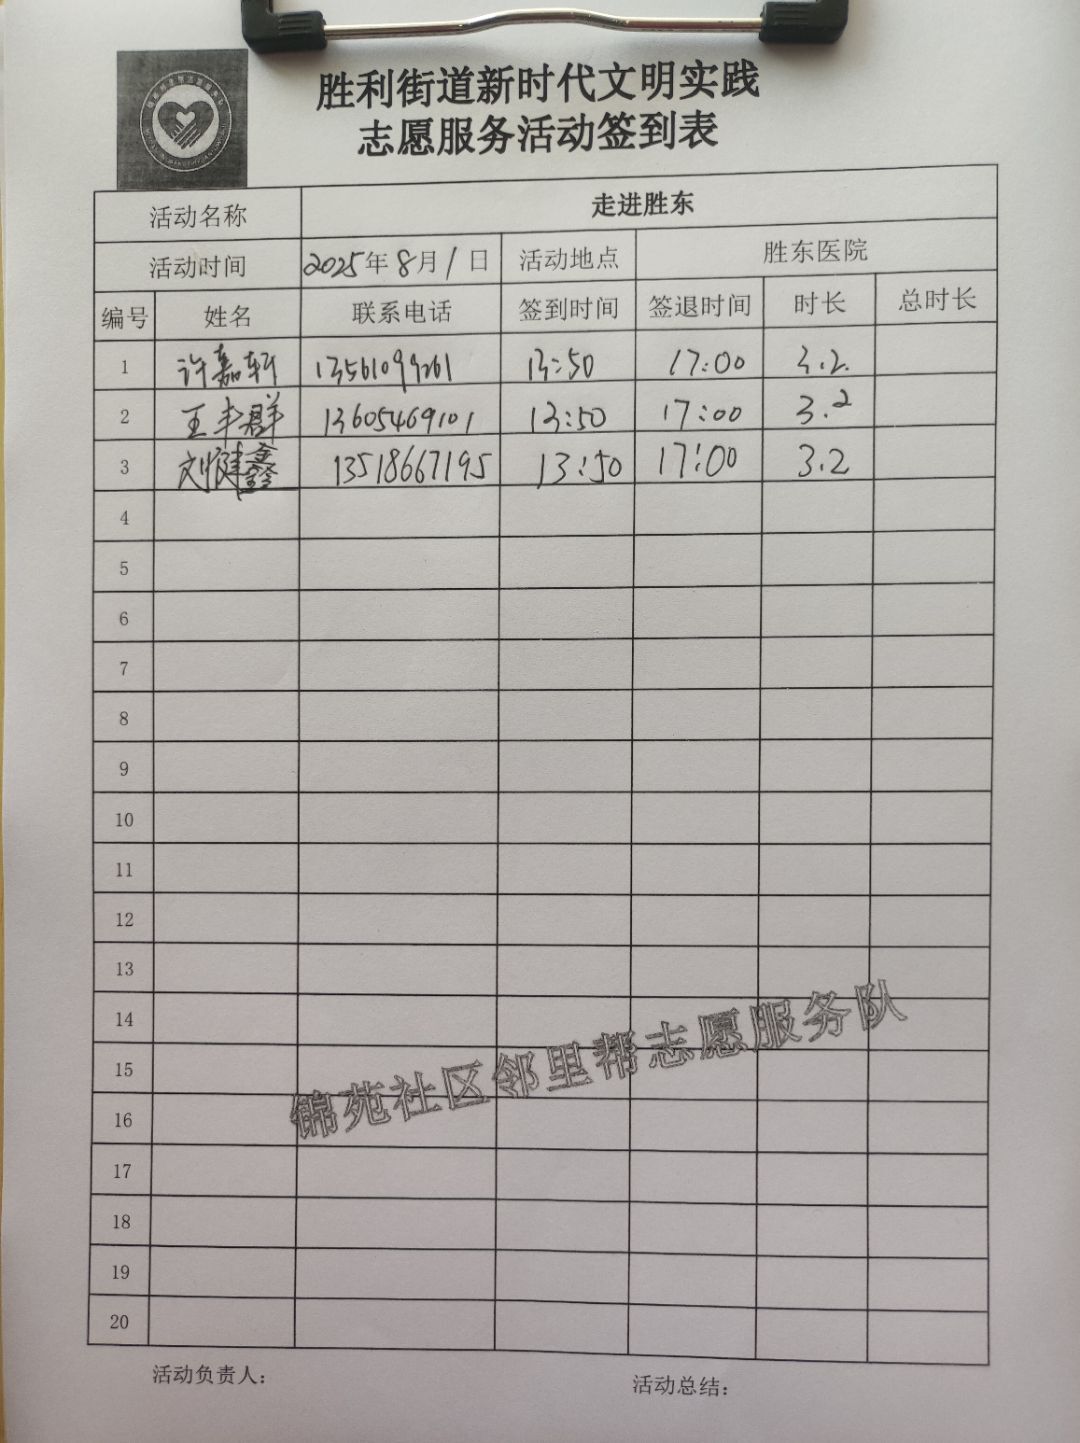 胜利街道新时代文明实践
志愿服务活动签到表
活动名称 走进胜东
活动时间 2025年8月1日 活动地点 胜东医院
编号 姓名 联系电话 签到时间 签退时间 时长 总时长
1 许嘉轩 13561099261 13:50 17:00 3.2
2 王丰群 13605469101 13:50 17:00 3.2
3 刘健鑫 13518667195 13:50 17:00 3.2
4
5
6
7
8
9
10
11
12
13
14
15
16
17
18
19
20
锦苑社区邻里帮志愿服务队
活动负责人: 活动总结: